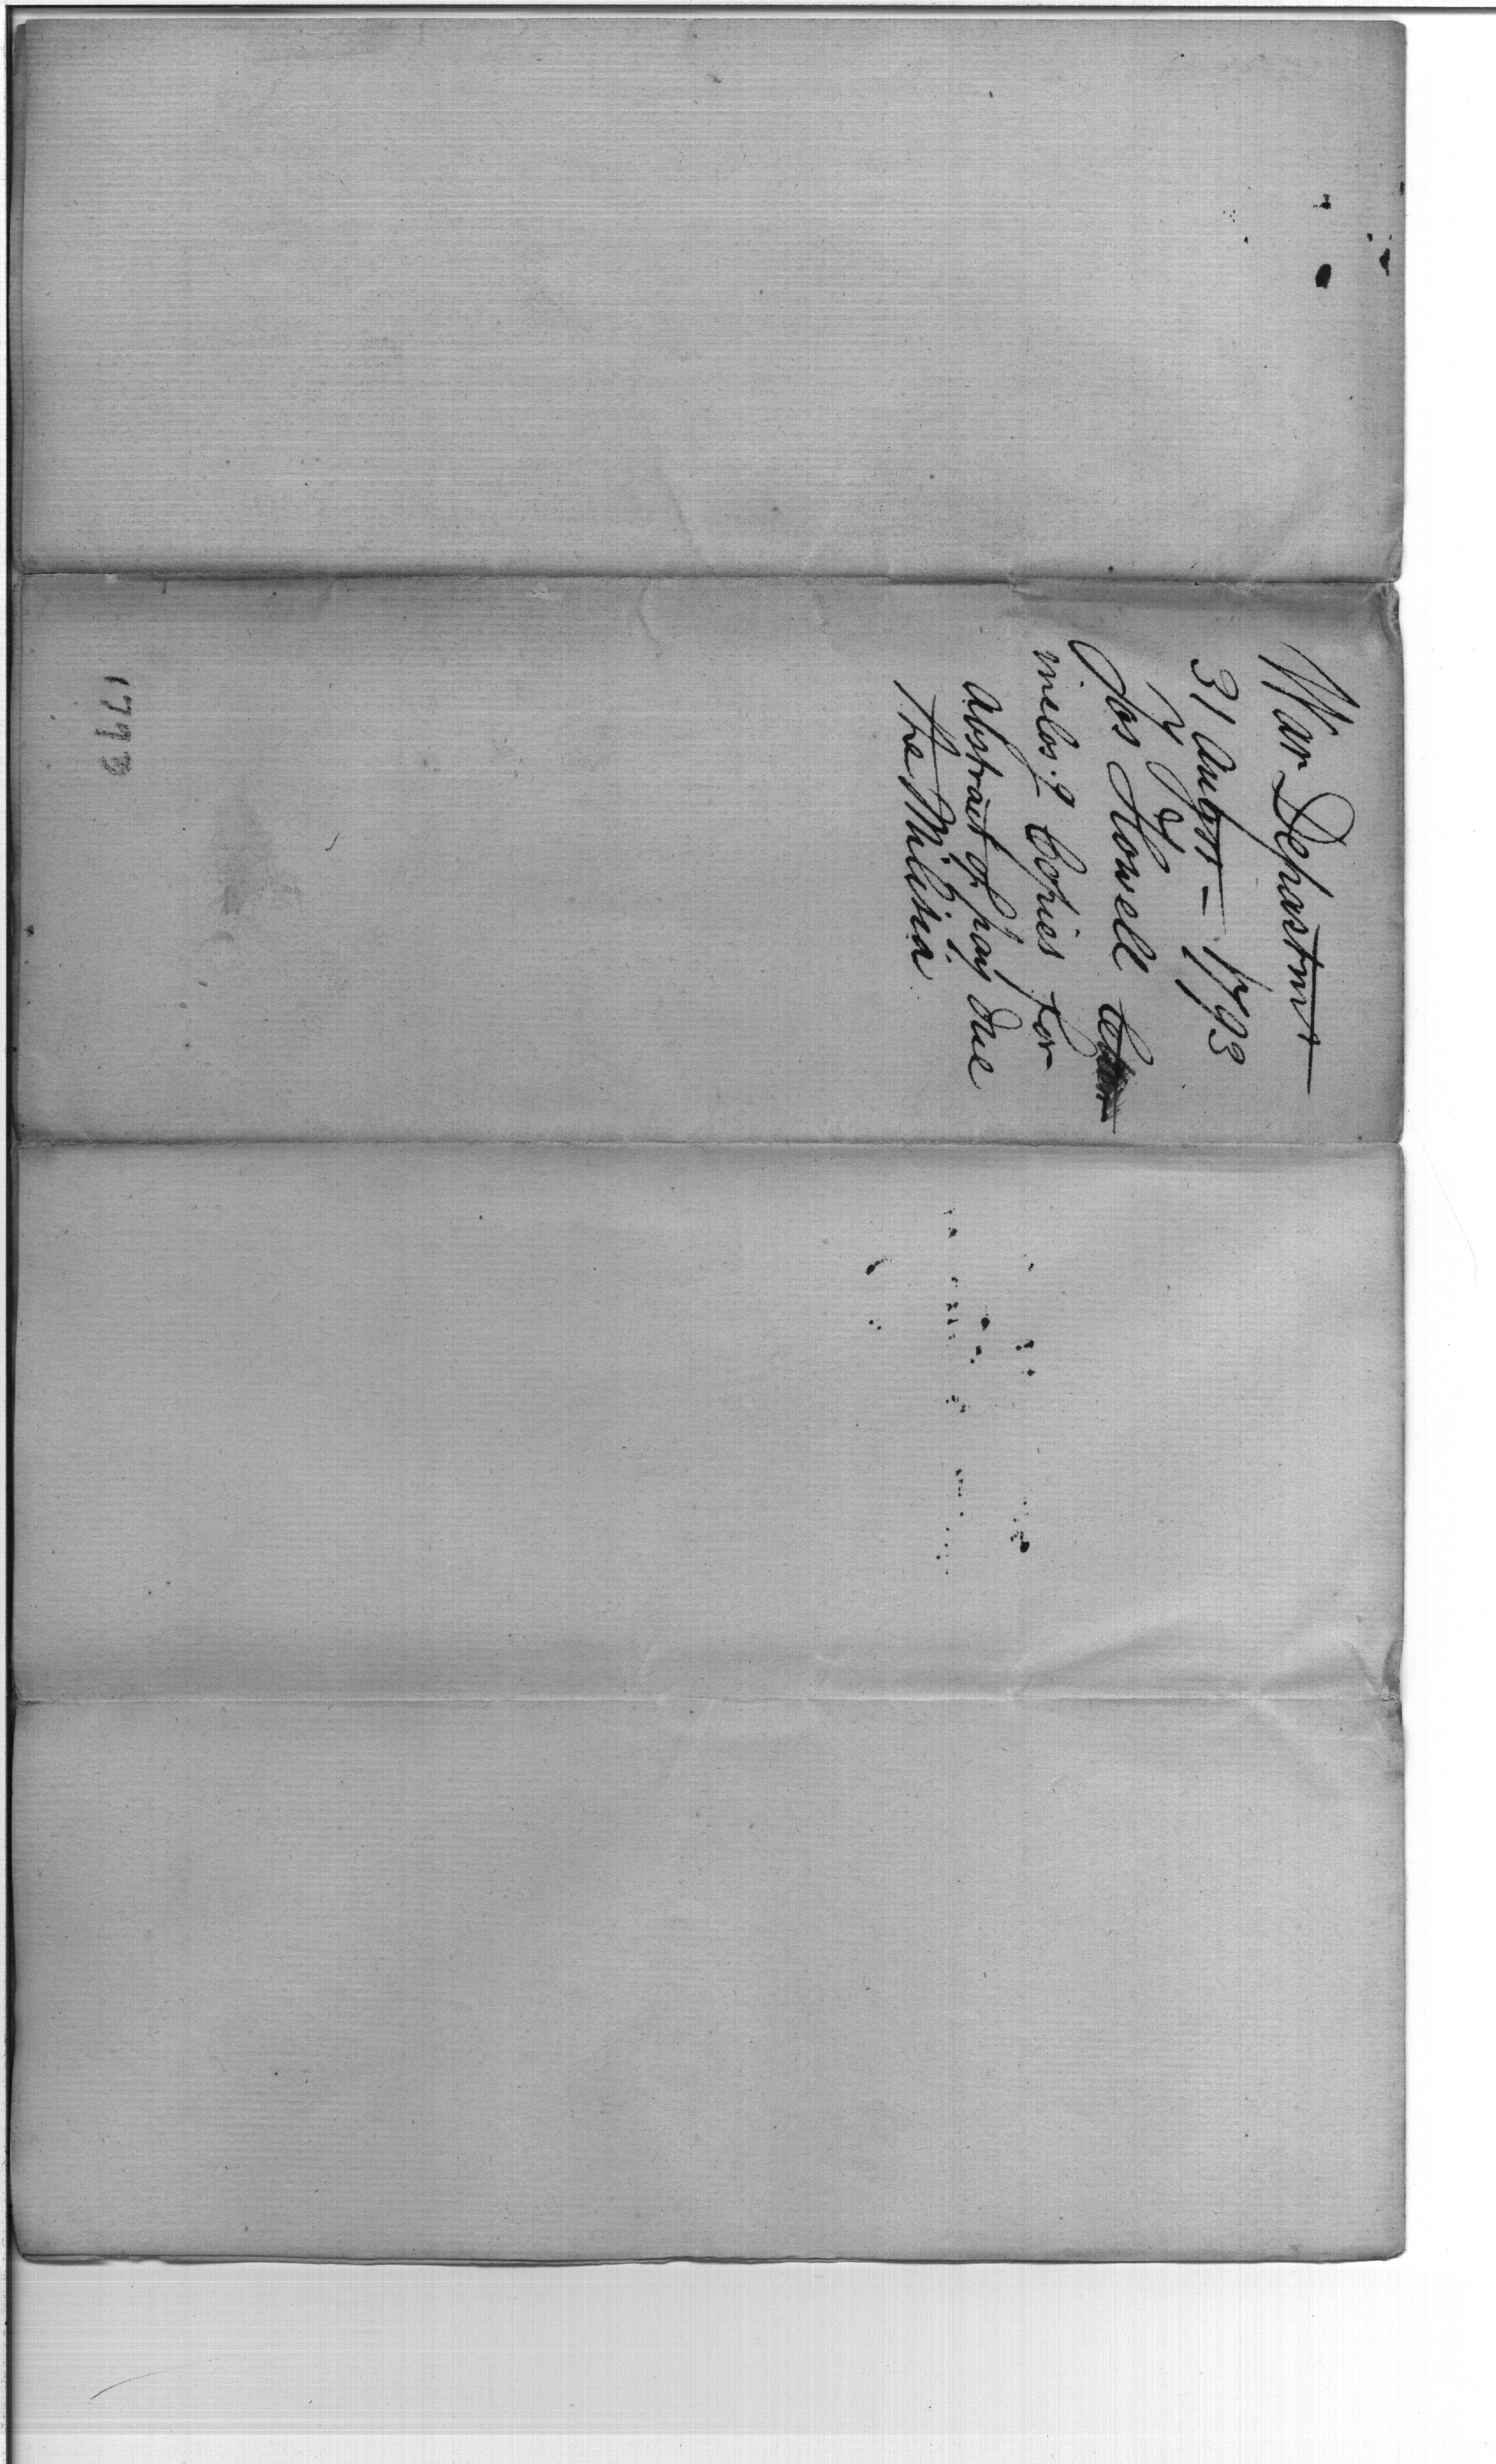 War Departmt
31 Augst - 1793
Jos Howell
inclos.g Copies for
Abstract of pay due
the Militia
1793